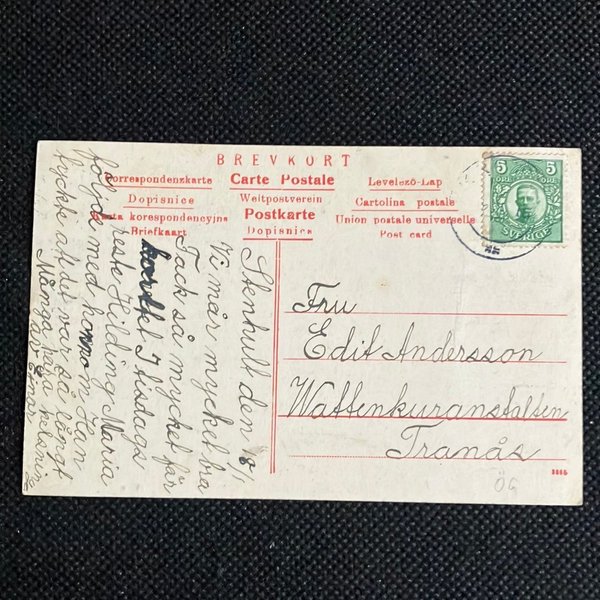 BREVKORT
Correspondenzkarte
Carte Postale
Levelező-Lap
Dopisnice
Weltpostverein
Cartolina postale
korespondencyjna
Postkarte
Union postale universelle
Briefkaart
Dopisnica
Post card
5 5
ÖRE ÖRE
SVERIGE
Stenhult den /1
Vi mår mycket bra
Tack så mycket för
kortet I tisdags
reste Hilding Maria
följde med honom Han
tyckte att det var så långt
Många hälsnin
av Einar
Fru
Edit Andersson
Wattenkuranstalten
Tranås
ÖG